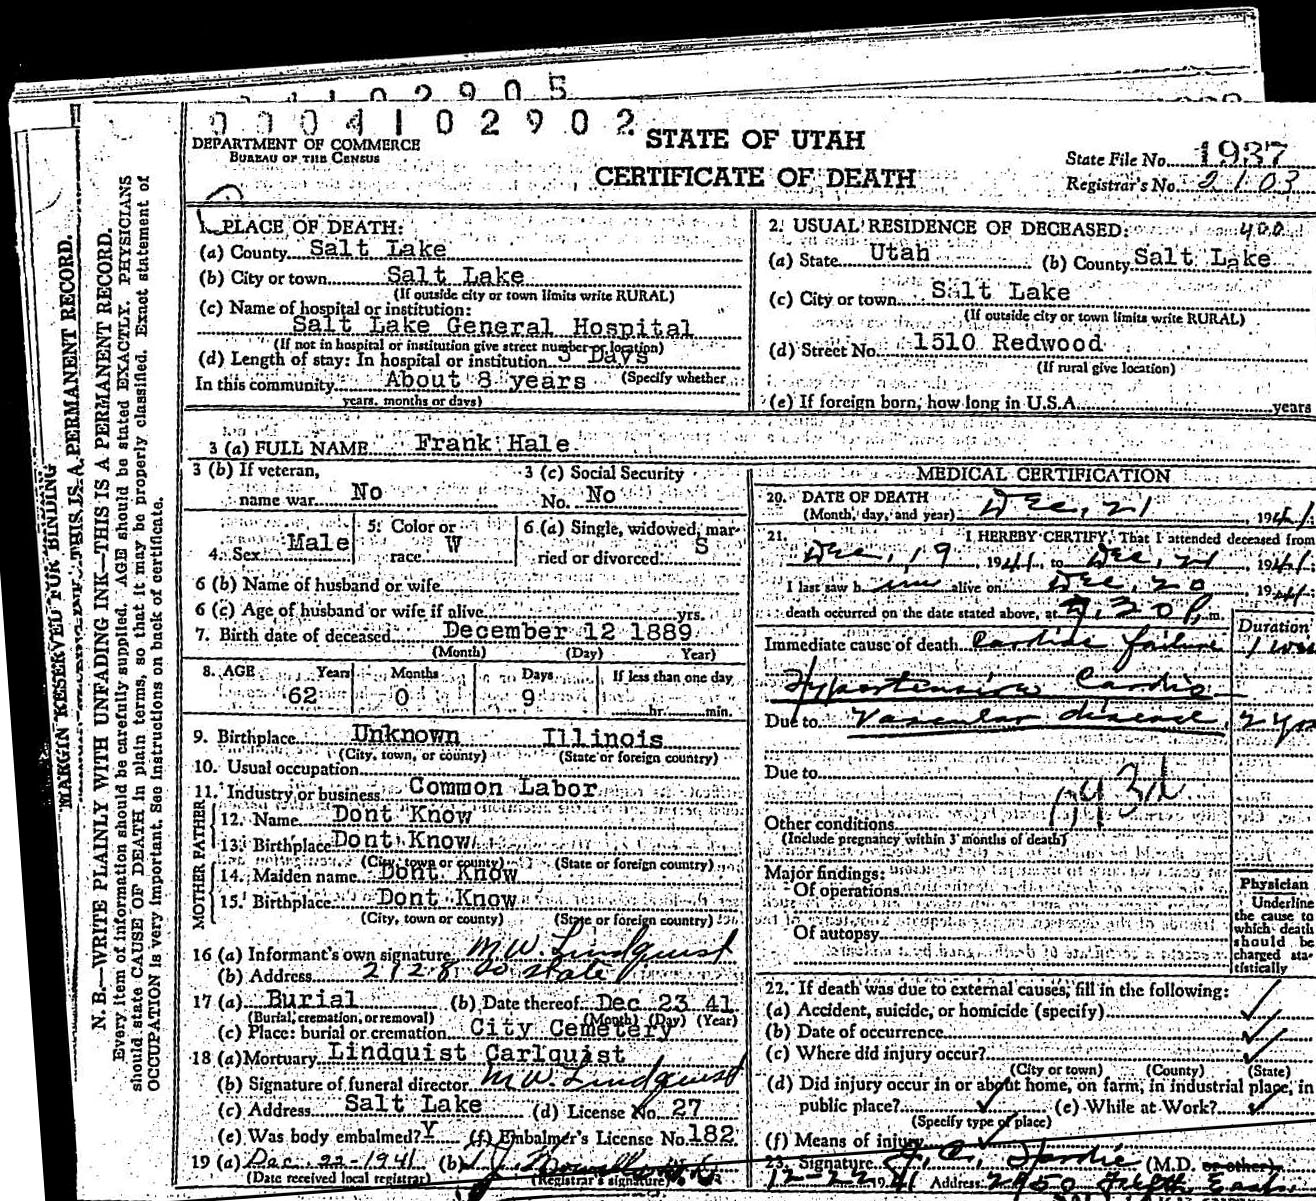 0 0 0 4 1 0 2 9 0 2
DEPARTMENT OF COMMERCE
BUREAU OF THE CENSUS
STATE OF UTAH
CERTIFICATE OF DEATH
State File No. 1937
Registrar's No. 2103
1. PLACE OF DEATH:
(a) County Salt Lake
(b) City or town Salt Lake
(If outside city or town limits write RURAL)
(c) Name of hospital or institution:
Salt Lake General Hospital
(If not in hospital or institution give street number or location)
(d) Length of stay: In hospital or institution 3 Days
In this community About 8 years (Specify whether
years, months or days)
2. USUAL RESIDENCE OF DECEASED: 400
(a) State Utah (b) County Salt Lake
(c) City or town Salt Lake
(If outside city or town limits write RURAL)
(d) Street No. 1510 Redwood
(If rural give location)
(e) If foreign born, how long in U.S.A. years
3 (a) FULL NAME Frank Hale
3 (b) If veteran,
name war No
3 (c) Social Security
No. No
4. Sex Male
5. Color or
race W
6 (a) Single, widowed, mar-
ried or divorced S
6 (b) Name of husband or wife
6 (c) Age of husband or wife if alive yrs.
7. Birth date of deceased December 12 1889
(Month) (Day) Year)
8. AGE Years Months Days If less than one day
62 0 9 hr. min.
9. Birthplace Unknown Illinois
(City, town, or county) (State or foreign country)
10. Usual occupation
11. Industry or business Common Labor
FATHER
12. Name Dont Know
13. Birthplace Dont Know
(City, town or county) (State or foreign country)
MOTHER
14. Maiden name Dont Know
15. Birthplace Dont Know
(City, town or county) (State or foreign country)
16 (a) Informant's own signature M.W. Lindquist
(b) Address 2128 So State
17 (a) Burial (b) Date thereof Dec 23 41
(Burial, cremation, or removal) (Month) (Day) (Year)
(c) Place: burial or cremation City Cemetery
18 (a) Mortuary Lindquist Carlquist
(b) Signature of funeral director M.W. Lindquist
(c) Address Salt Lake (d) License No. 27
(e) Was body embalmed? Y (f) Embalmer's License No. 182
19 (a) Dec. 22-1941 (b)
(Date received local registrar) (Registrar's signature)
MEDICAL CERTIFICATION
20. DATE OF DEATH
(Month, day, and year) Dec, 21, 1941
21. I HEREBY CERTIFY, That I attended deceased from
Dec, 19 1941, to Dec, 21, 1941;
I last saw him alive on Dec, 20 1941;
death occurred on the date stated above, at 7,20 P. m.
Duration
Immediate cause of death Cardiac failure 1
Hypertensive Cardio
Due to Vascular disease 2
Due to
093d
Other conditions
(Include pregnancy within 3 months of death)
Major findings:
Of operations
Of autopsy
Physician
Underline
the cause to
which death
should be
charged sta-
tistically
22. If death was due to external causes, fill in the following:
(a) Accident, suicide, or homicide (specify)
(b) Date of occurrence
(c) Where did injury occur?
(City or town) (County) (State)
(d) Did injury occur in or about home, on farm, in industrial place, in
public place? (e) While at Work?
(Specify type of place)
(f) Means of injury
23. Signature (M.D. or other)
12-22 1941 Address 2950
MARGIN RESERVED FOR BINDING
N. B.—WRITE PLAINLY WITH UNFADING INK—THIS IS A PERMANENT RECORD.
Every item of information should be carefully supplied. AGE should be stated EXACTLY. PHYSICIANS
should state CAUSE OF DEATH in plain terms, so that it may be properly classified. Exact statement of
OCCUPATION is very important. See instructions on back of certificate.